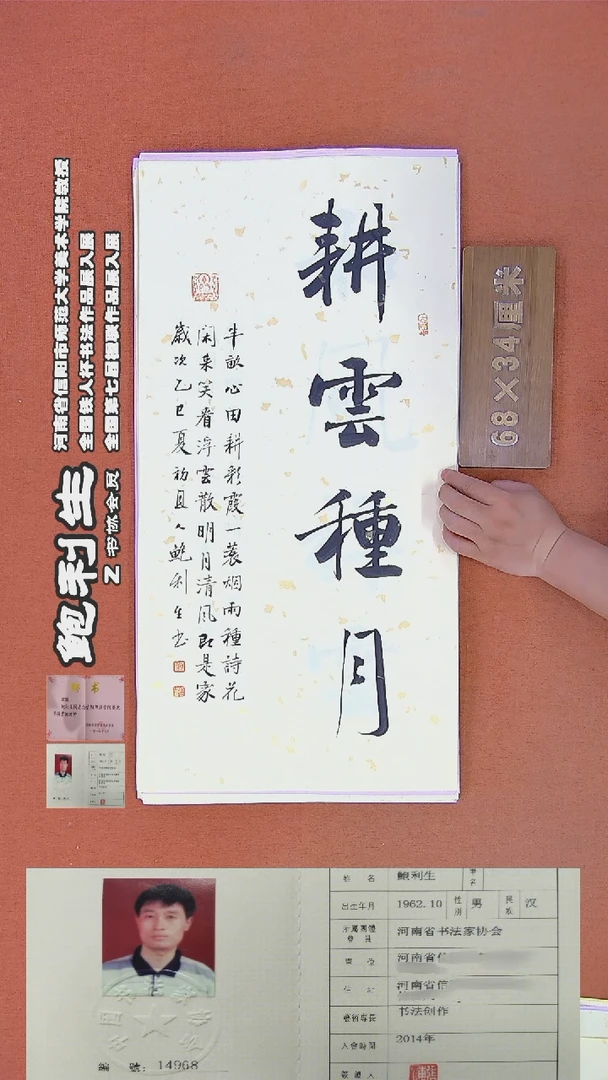 耕雲種月
半畝心田耕彩霞一蓑烟雨種詩花
閑来笑看浮雲散明月清風即是家
歲次乙巳夏初旦人鮑利生书
68×34厘米
河南省信阳市师范大学美术学院教授
全国铁人杯书法作品展入展
全国第七届楹联作品展入展
鲍利生
Z 书协会员
編 號：14968
姓 名 鲍利生
出生年月 1962.10 性别 男 民族 汉
所屬團體會員 河南省书法家协会
單 位 河南省信
住 址 河南省信
藝術專長 书法创作
入會時間 2014年